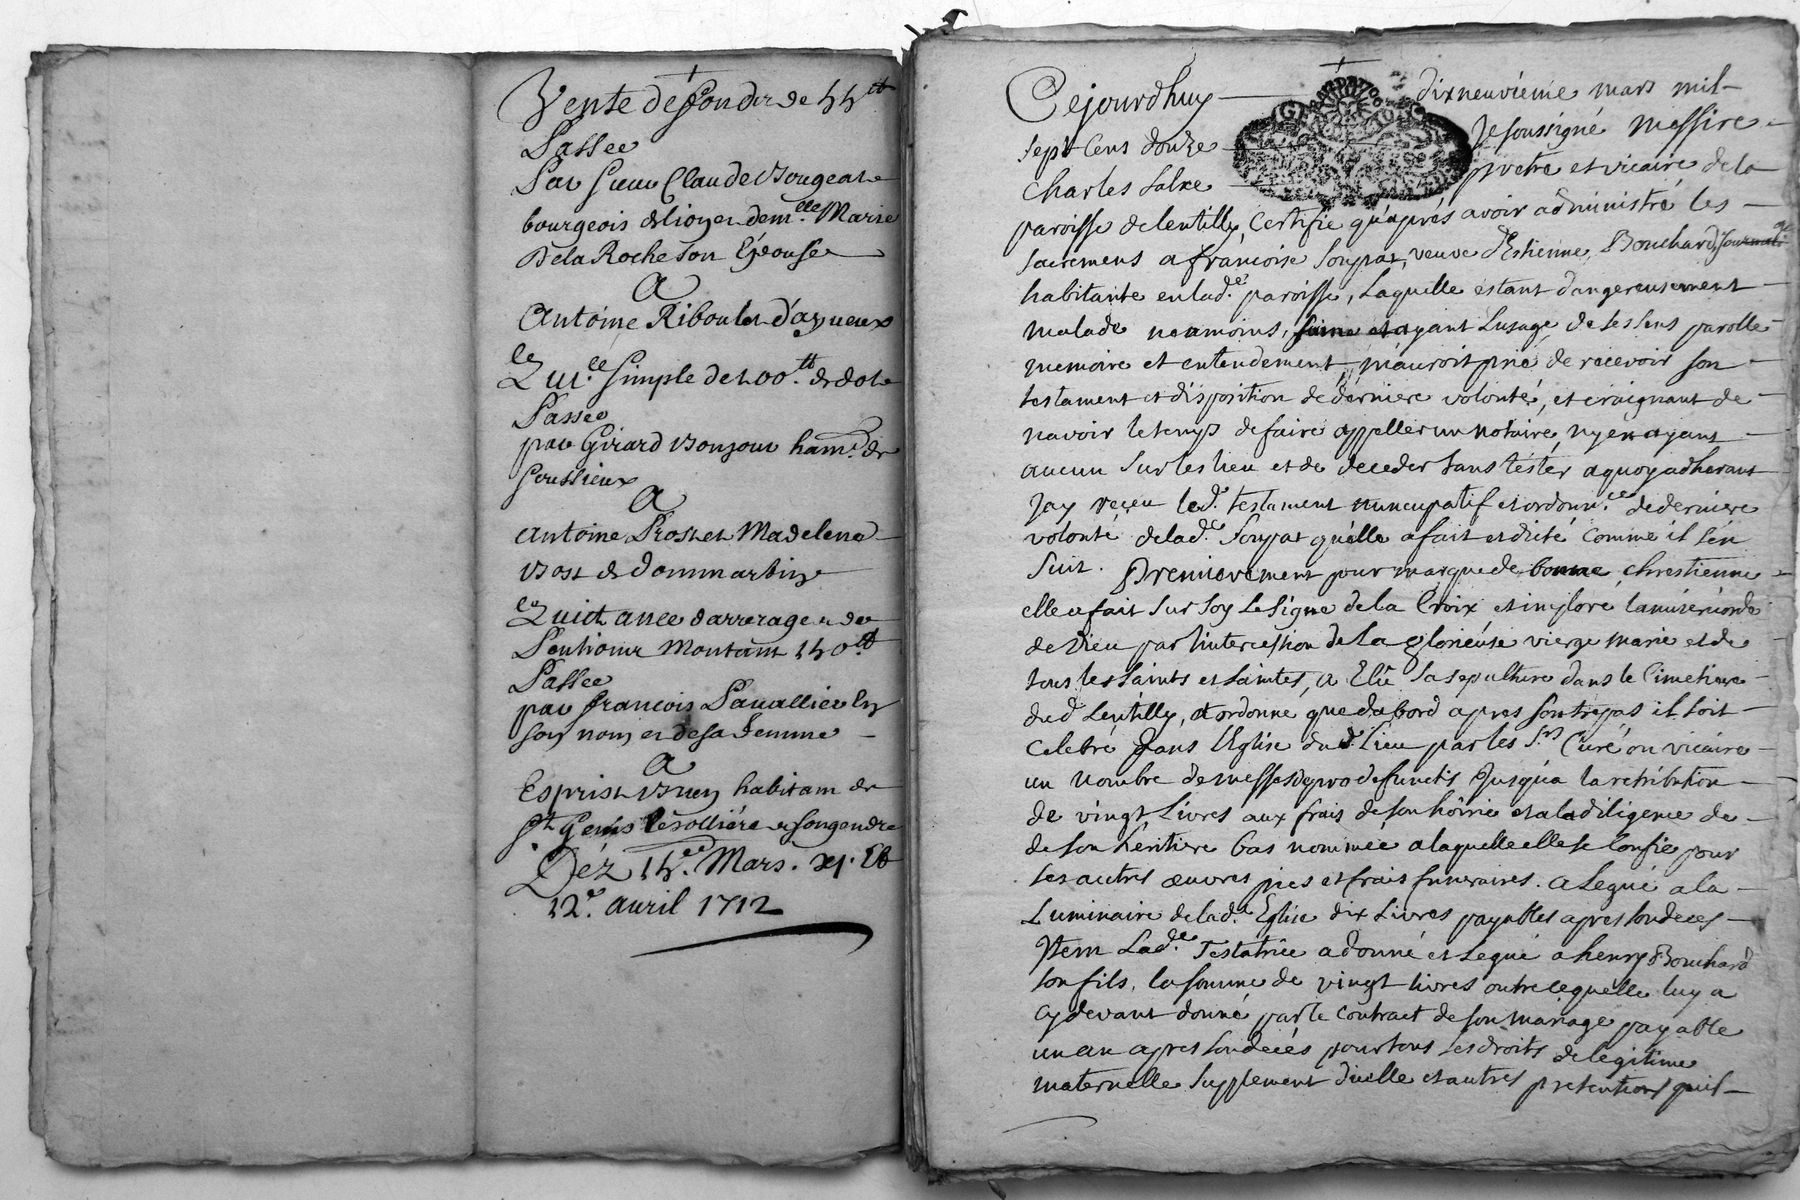 Vente de fonder de 55tt
Passée
Par sieur Claude Bougeat
bourgeois de lion et dem.lle Marie
Dela Roche son Epouse
A
Antoine Riboulet d'azyeux
Quit.ce simple de 100.tt de dot
Passée
par Girard Bonjour ham.t de
Soussieux
A
Antoine Prost et Madelene
Bost de dommartin
Quictance darrerages de
Pention Montant 150tt
Passée
par francois Lavallier En
son nom et de sa femme
A
Esprist habitant de
st Genis Lesollière et son gendre
Dez 15.e Mars. xj. Et
12.e avril 1712
Cejourdhuy dixneuvieme mars mil
sept Cens douze Je soussigné Messire
Charles prebtre et vicaire de la
paroisse de lentilly, Certifie qu'aprés avoir administré les
sacremens a francoise Soupat, veuve d'Estienne Bouchard
habitante en lad.e paroisse, Laquelle estant dangereusement
malade neamoins, ayant Lusage de ses sens parolle
memoire et entendement, m'auroit prié de recevoir son
testament et disposition de derniere volonté, et craignant de
navoir le temps de faire appeller un notaire, ny en ayant
aucun sur les lieu et de deceder sans tester a quoy adherant
Jay reçeu led.t testament nuncupatif et ordonn.ce de derniere
volonté delad.e Soupat qu'elle a fait et dicté comme il s'en
suit. Premierement pour marque de bonne chrestienne
elle a fait sur soy Le signe de la Croix et imploré la misericorde
de Dieu par l'intercession de La glorieuse vierge marie et de
tous les saints et saintes, a Elû sa sepulture dans le Cimetiere
dud. Lentilly, et ordonne que dabord apres son trepas il soit
Celebré dans l'Eglise dud. Lieu par les S.rs Curé ou vicaire
un nombre de messes de pro defunctis Jusqu'a la retribution
de vingt Livres aux frais de son hoirie et a la diligence de
de son heritiere bas nommée a laquelle elle se Confie pour
ses autres œuvres pies et frais funeraires. a Legué a la
Luminaire de lad.e Eglise dix Livres payables apres son deces
Item Lad.e Testatrice a donné et Legué a henry Bouchard
son fils, la somme de vingt livres outre ce qu'elle luy a
Cy devant donné par le Contract de son mariage payable
un an apres son decés pour tous ses droits de legitime
maternelle supplement d'icelle et autres pretentions quil